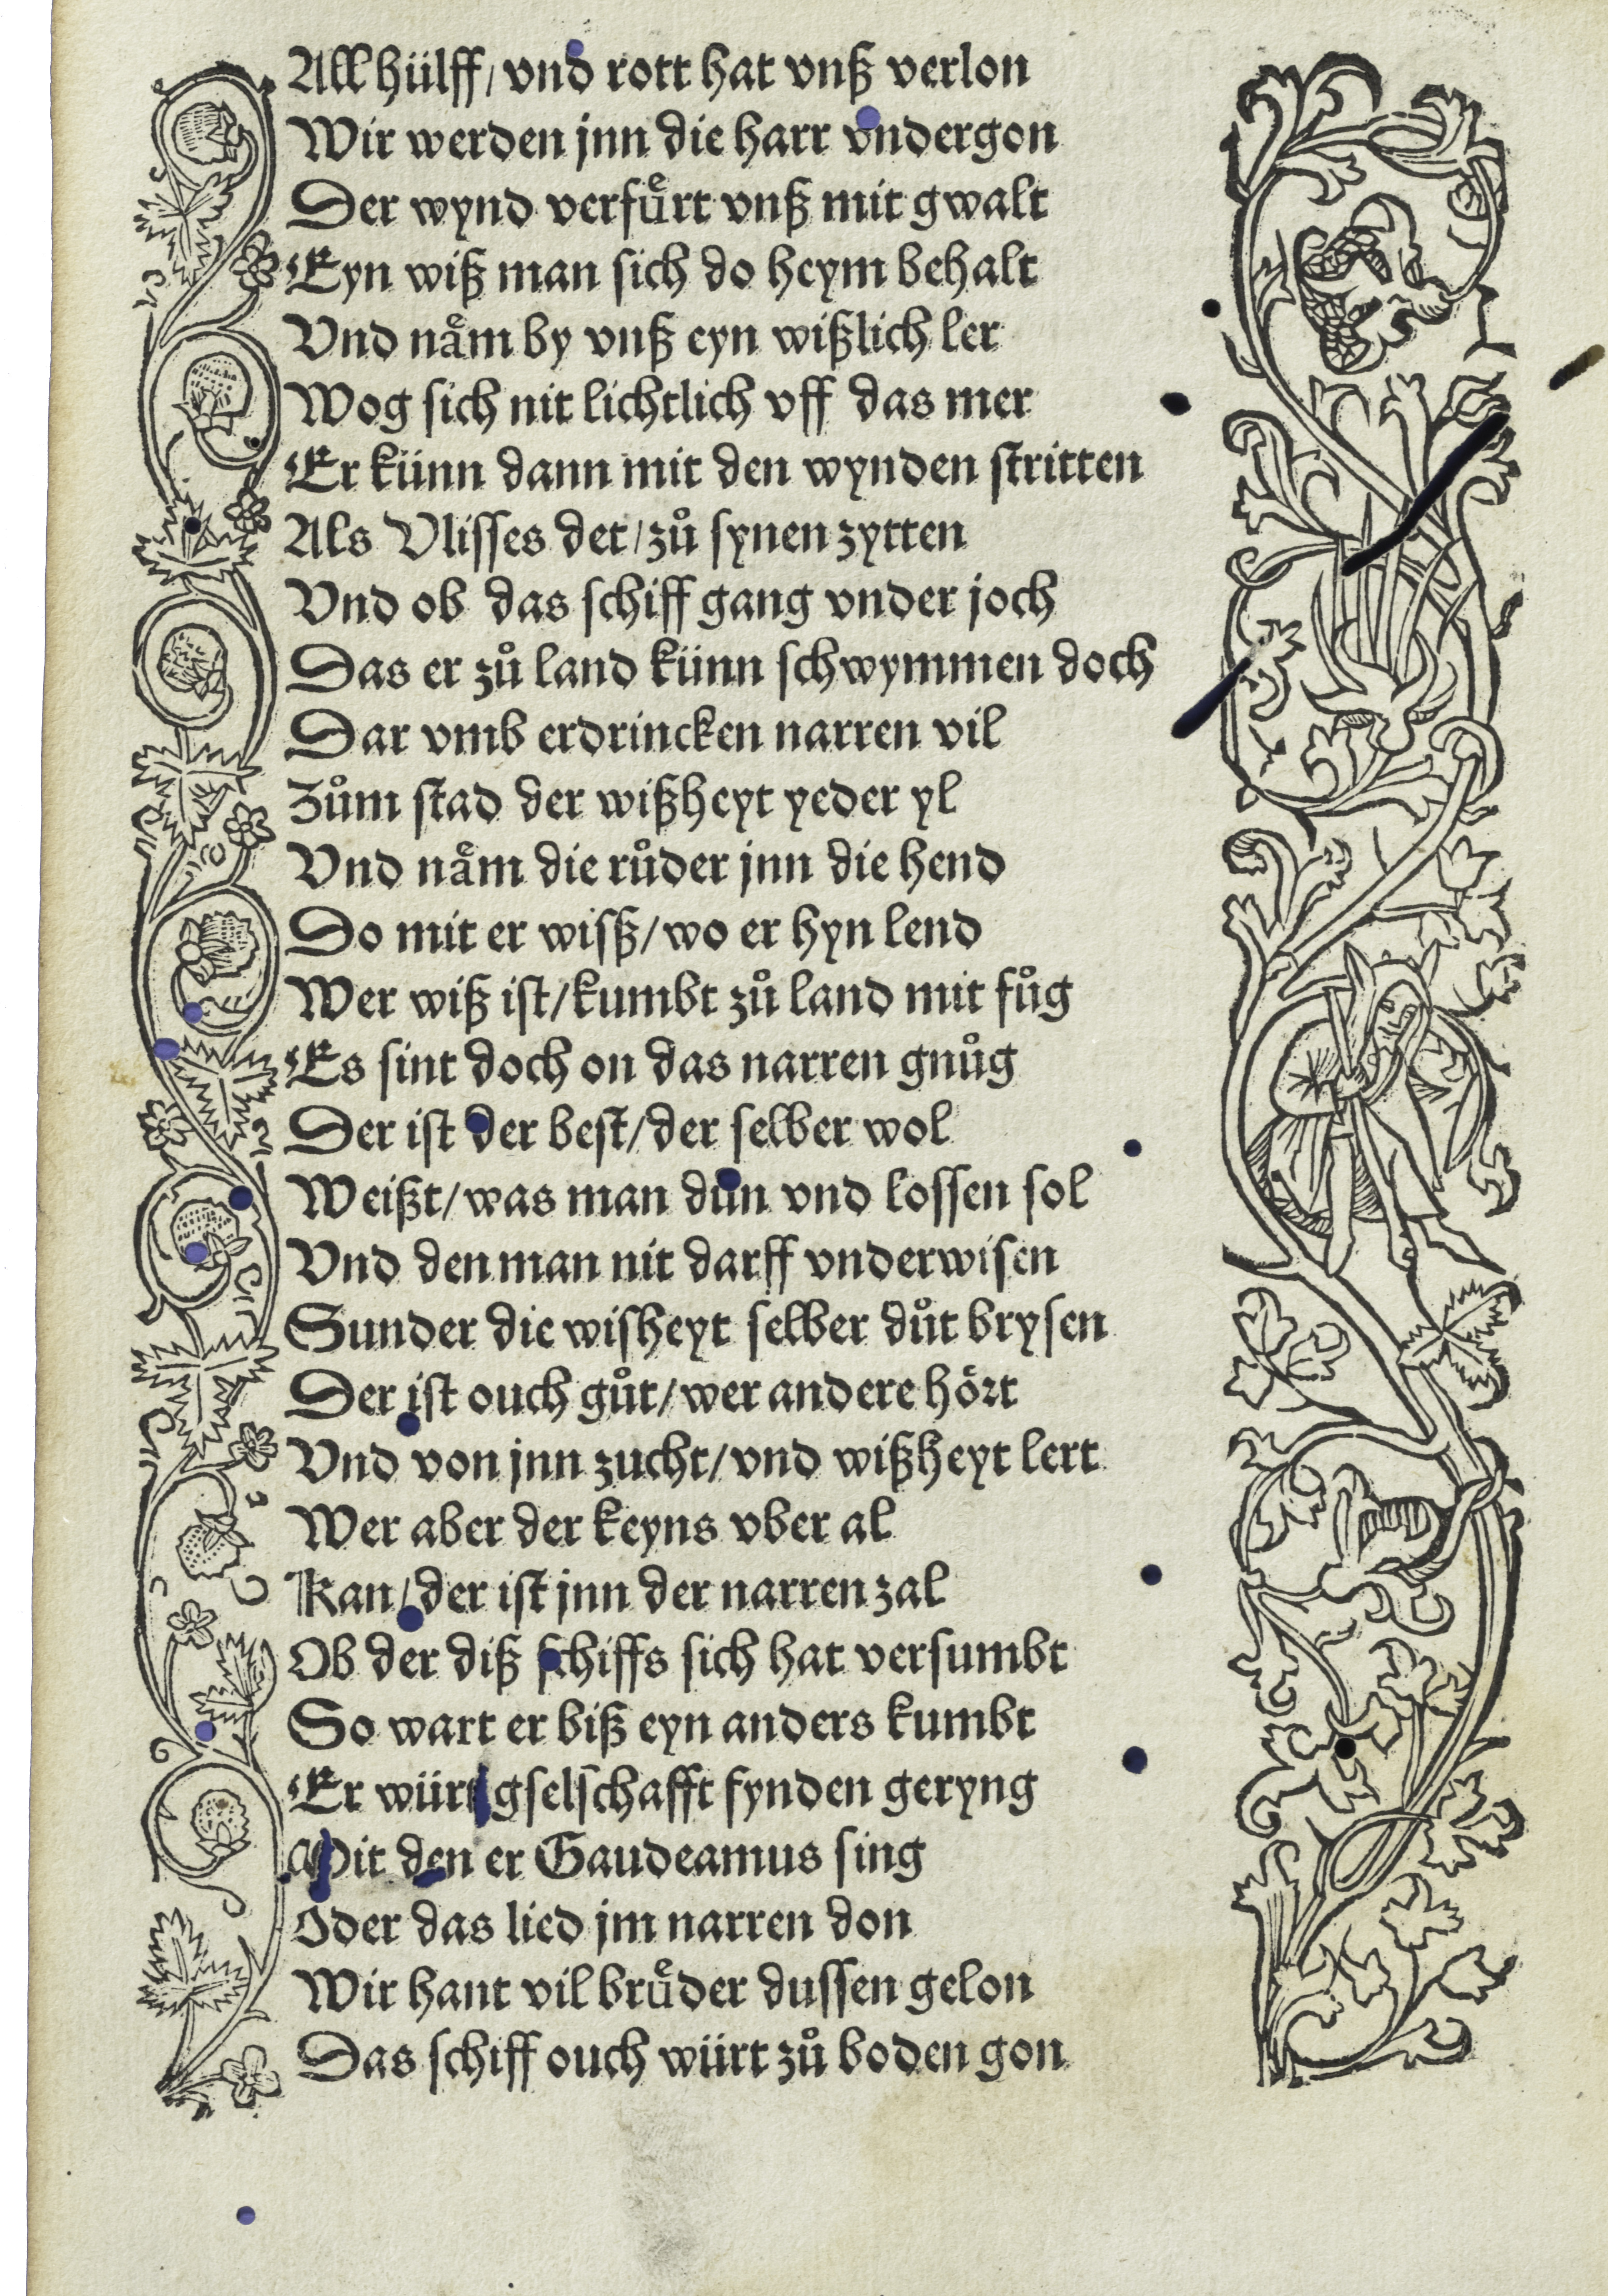 All hülff/ vnd rott hat vnß verlon
Wir werden jnn die harr vndergon
Der wynd verfuͤrt vnß mit gwalt
Eyn wiß man sich do heym behalt
Vnd naͤm by vnß eyn wißlich ler
Wog sich nit lichtlich vff das mer
Er künn dann mit den wynden stritten
Als Vlisses det/ zuͦ synen zytten
Vnd ob das schiff gang vnder joch
Das er zuͦ land künn schwymmen doch
Dar vmb erdrincken narren vil
Zuͦm stad der wißheyt yeder yl
Vnd naͤm die ruͦder jnn die hend
Do mit er wisß/ wo er hyn lend
Wer wiß ist/ kumbt zuͦ land mit fuͦg
Es sint doch on das narren gnuͦg
Der ist der best/ der selber wol
Weißt/ was man duͦn vnd lossen sol
Vnd den man nit darff vnderwisen
Sunder die wisheyt selber duͦt brysen
Der ist ouch guͦt/ wer andere hoͤrt
Vnd von jnn zucht/ vnd wißheyt lert
Wer aber der keyns vber al
Kan/ der ist jnn der narren zal
Ob der diß schiffs sich hat versumbt
So wart er biß eyn anders kumbt
Er würt gselschafft fynden geryng
Mit den er Gaudeamus sing
Oder das lied jm narren don
Wir hant vil bruͤder dussen gelon
Das schiff ouch würt zuͦ boden gon